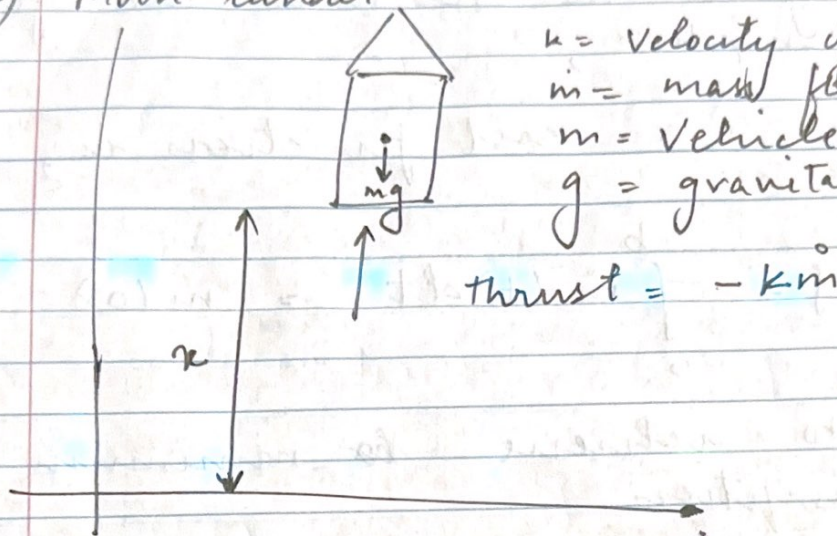 k = velocity
ṁ = mass
m = Vehicle
g = gravita
mg
thrust = - kṁ
x